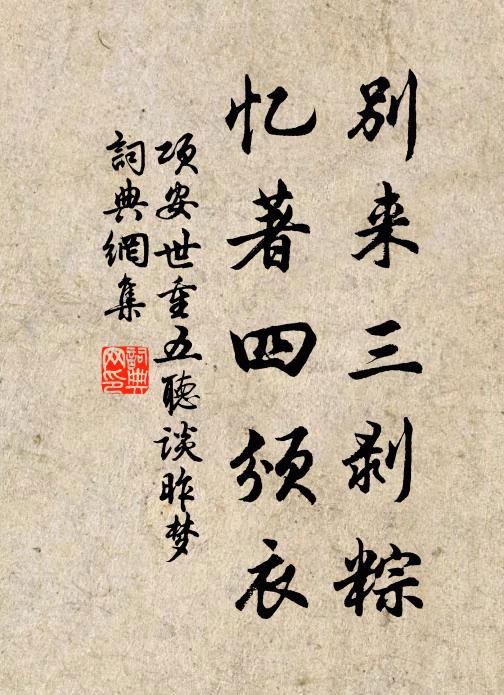 别来三剥粽
忆著四颁衣
项安世重五聽谈昨梦
詞典網集
詞典网印